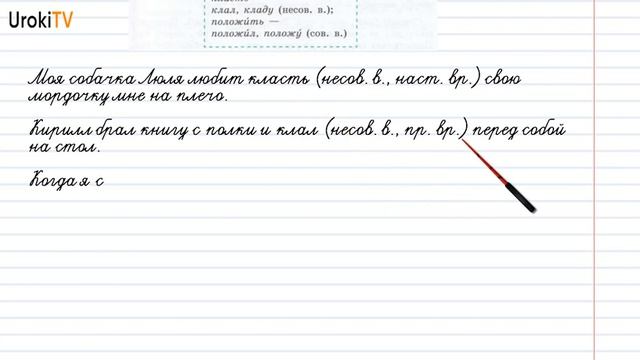 UrokiTV
клал, кладу (несов. в.);
положи́ть —
положи́л, положу́ (сов. в.)
Моя собачка Люля любит класть (несов. в., наст. вр.) свою
мордочку мне на плечо.
Кирилл брал книгу с полки и клал (несов. в., пр. вр.) перед собой
на стол.
Когда я с